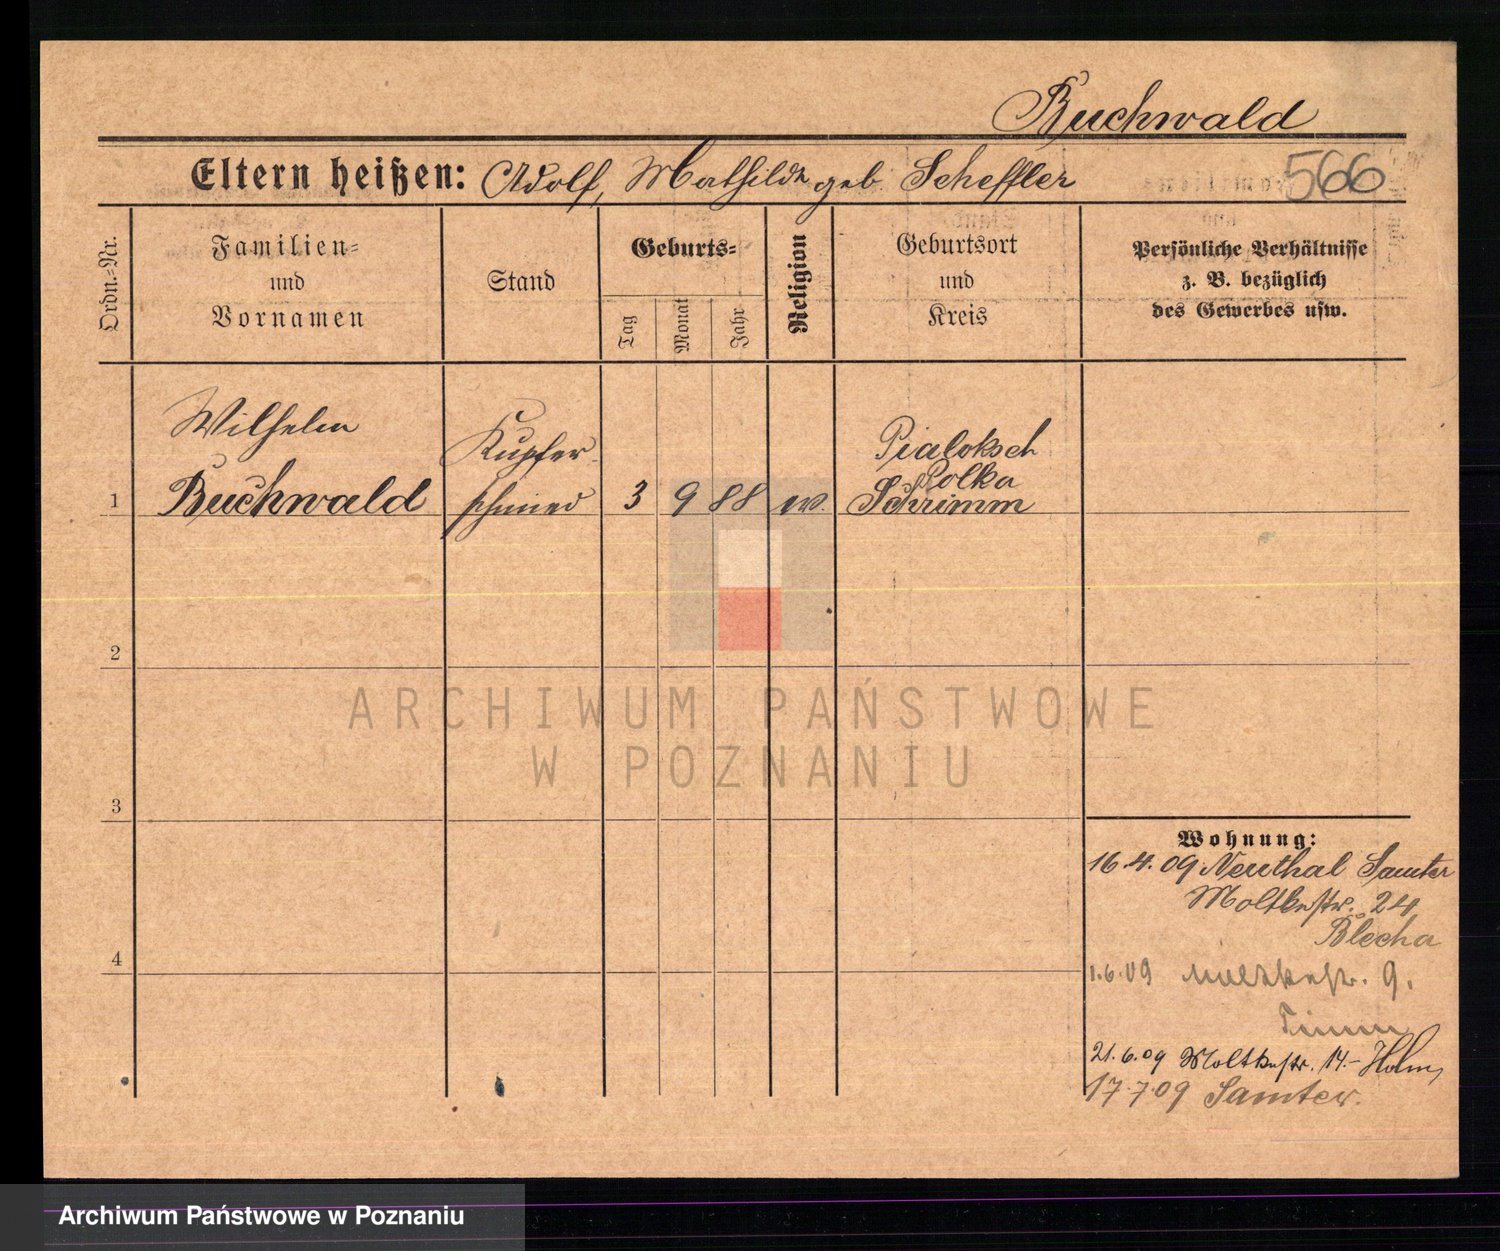 Buchwald
Eltern heißen: Adolf, Mathilde geb Scheffler
566
Ordn.-Nr.
Familien-
und
Vornamen
Stand
Geburts-
Tag
Monat
Jahr
Religion
Geburtsort
und
Kreis
Persönliche Verhältnisse
z. B. bezüglich
des Gewerbes usw.
1
Wilhelm
Buchwald
Kupfer-
schmied
3
9
88
Pialoksch
Polka
Schrimm
2
3
4
ARCHIWUM PAŃSTWOWE
W POZNANIU
Wohnung:
16.4.09 Neuthal Samter
Moltkestr. 24
Blecha
1.6.09 Moltkestr. 9.
21.6.09 Moltkestr. 14.- Holm
17.7.09 Samter.
Archiwum Państwowe w Poznaniu